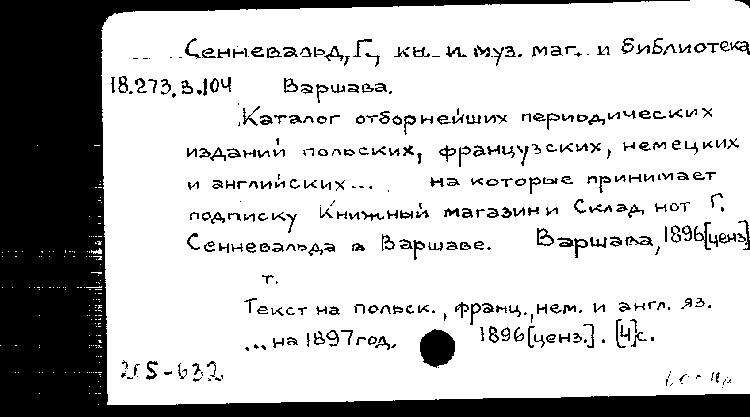 Сенневальд, Г., кн. и муз. маг. и библиотека
18.273.3.104 Варшава.
Каталог отборнейших периодических
изданий польских, французских, немецких
и английских... на которые принимает
подписку Книжный магазин и Склад нот Г.
Сенневальда в Варшаве. Варшава, 1896 [ценз]
т.
Текст на польск., франц., нем. и англ. яз.
... на 1897 год. 1896 [ценз.]. [4] с.
205-632